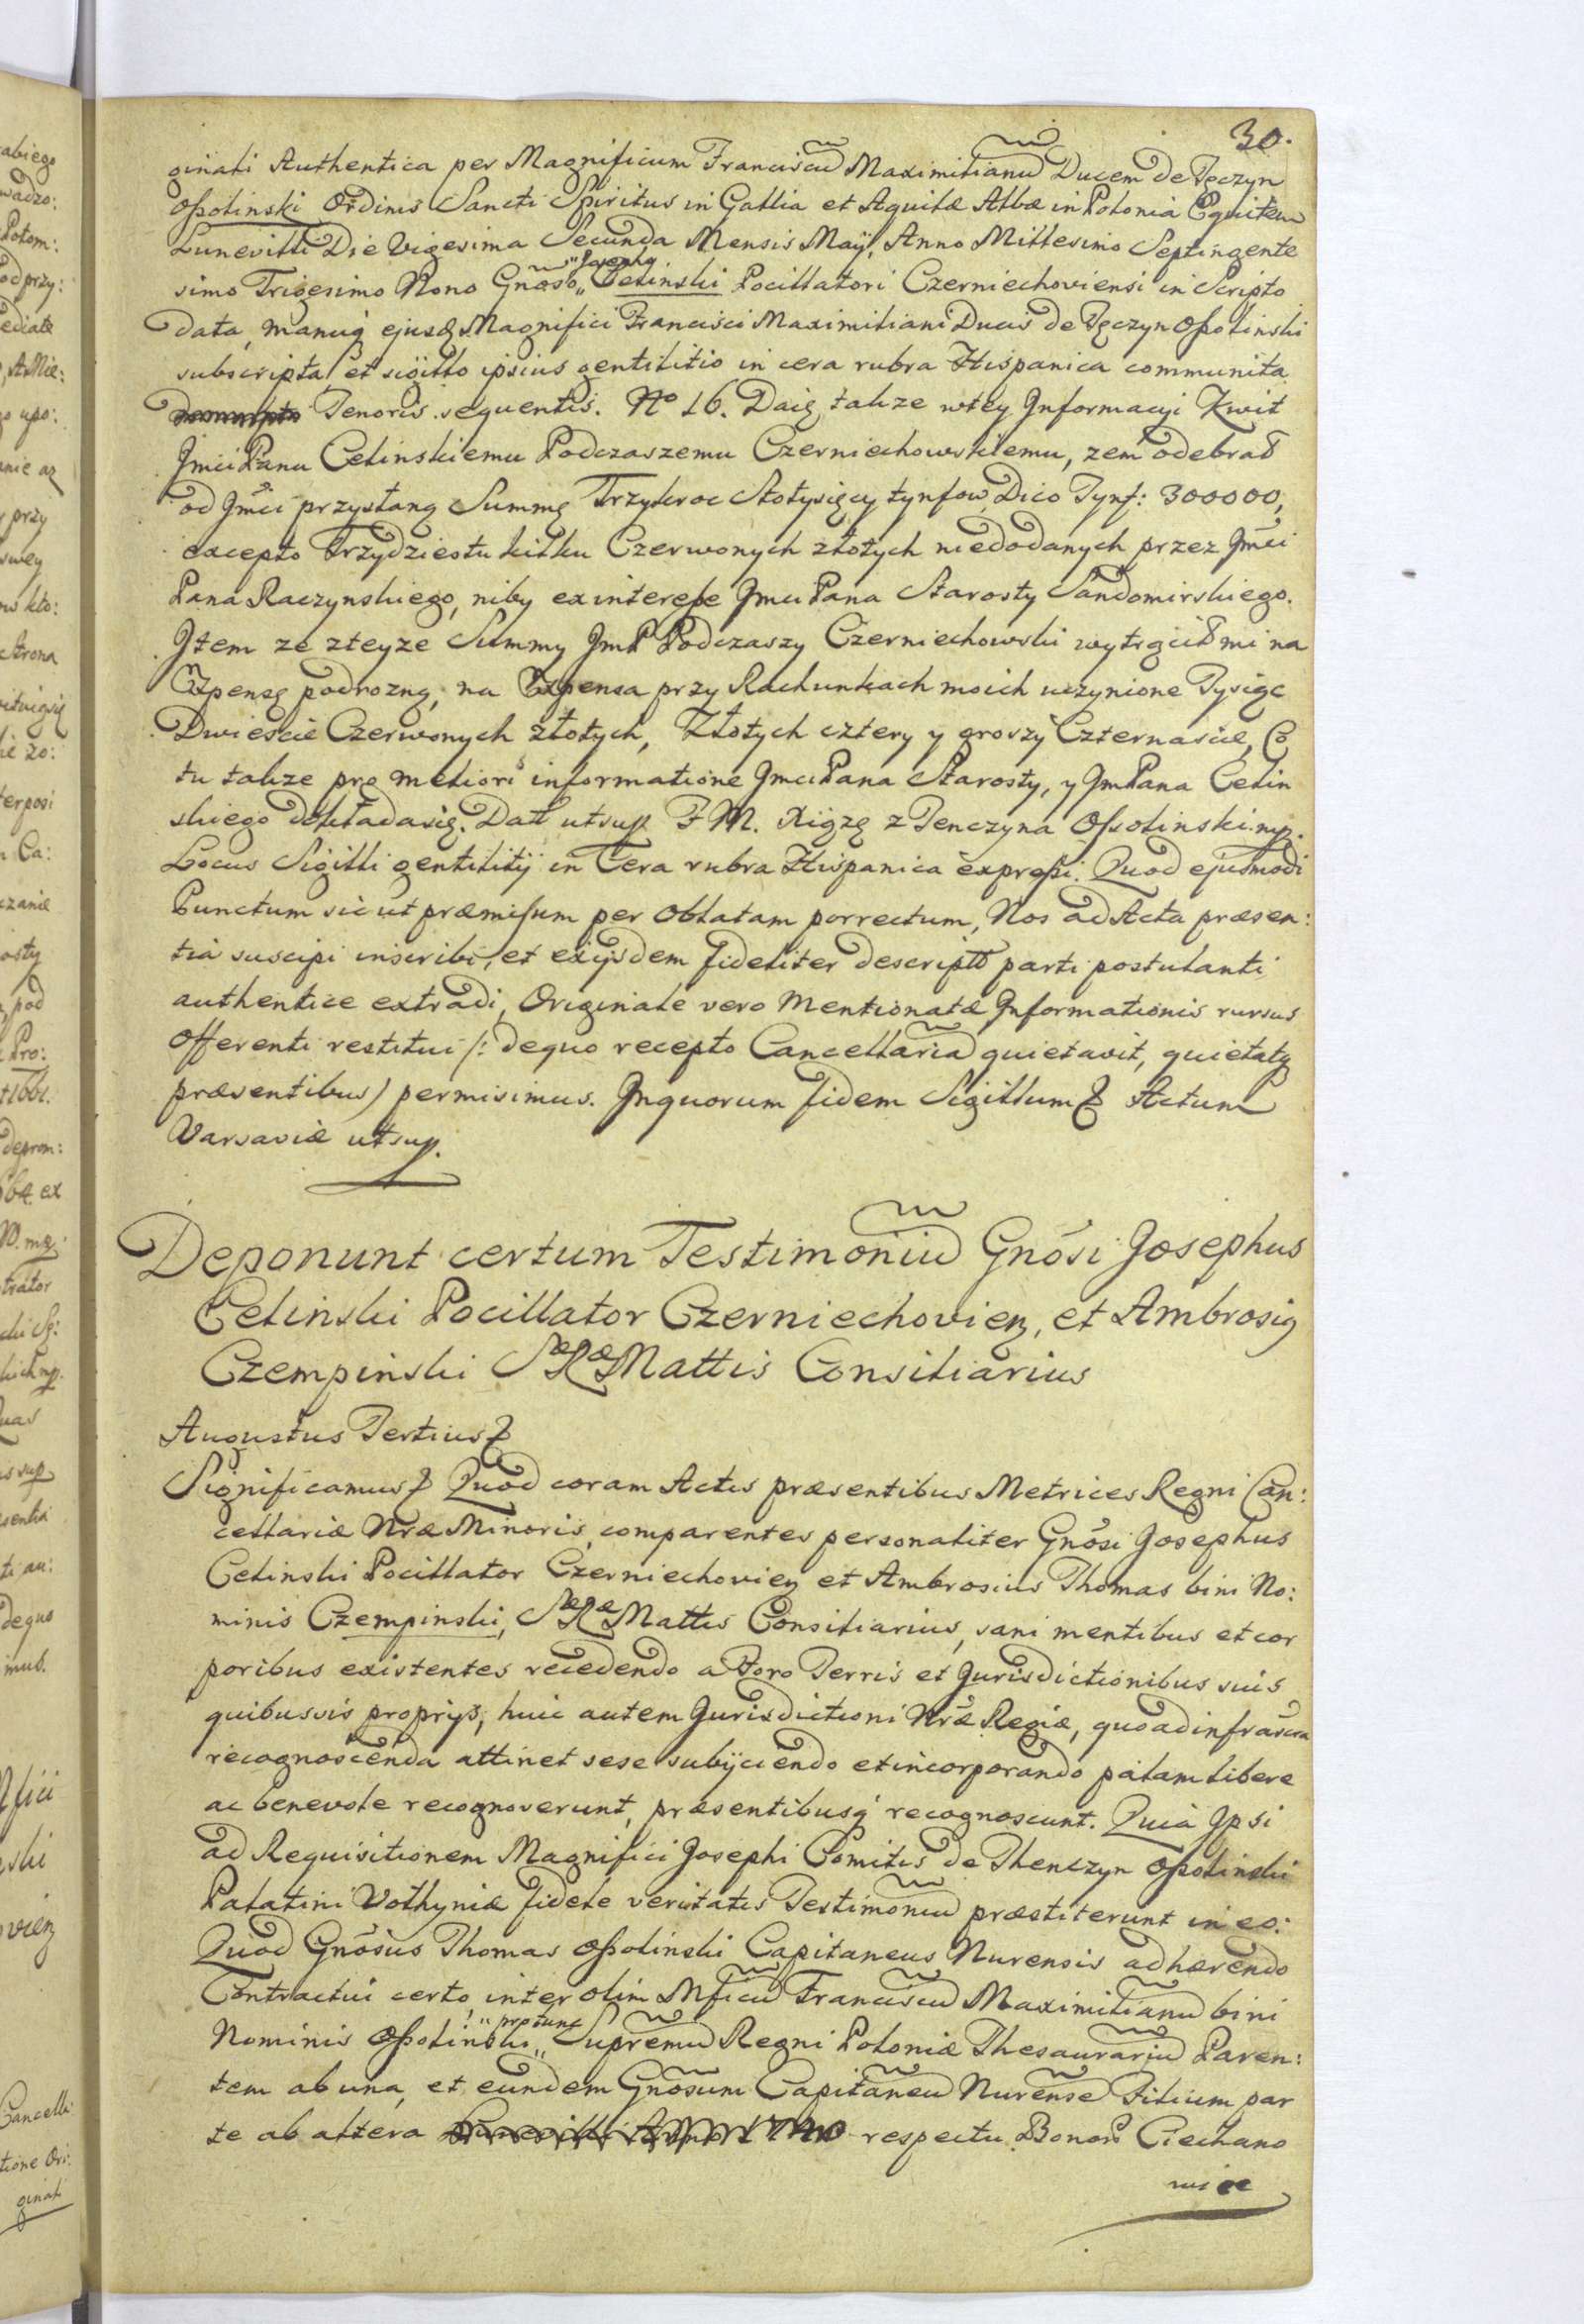 30.
ginali Authentica per Magnificum Franciscu Maximilianu Ducem de Tęczyn
Ossolinski Ordinis Sancti Spiritus in Gallia et Aquilæ Albæ in Polonia Equitem
Lunevilli Die Vigesima Secunda Mensis Maÿ, Anno Millesimo Septingente
simo Trigesimo Nono Gnoso „ Josepho Celinski Pocillatori Czerniechoviensi in Scripto
data, manuq́ ejusd Magnifici Francisci Maximiliani Ducis de Tęczyn Ossolinski
subscripta et sigillo ipsius gentilitio in cera rubra Hispanica communita
Tenoris sequentis. No 16. Daię takze wtey Informacyi Kwit
Jmci Panu Celinskiemu Podczaszemu Czerniechowskiemu, zem odebrał
od Jmci przysłaną Summę Trzykroc Stotysięcy tynfow, Dico Tynf: 300000,
excepto Trzydziestu kilku Czerwonych złotych niedodanych przez Jmci
Pana Raczynskiego, niby ex interesse Jmci Pana Starosty Sandomirskiego.
Jtem ze zteyze Summy JmP Podczaszy Czerniechowski wytrącił mi na
Expensę podrozną, na Expensa przy Rachunkach moich uczynione Tysiąc
Dwiescie Czerwonych złotych, Złotych cztery y groszy Czternascie, Co
tu takze pro meliori informatione Jmci Pana Starosty, y JmPana Celin
skiego dokładasię. Datt utsup F M. Xiążę z Tenczyna Ossolinski. mp.
Locus Sigilli gentilitÿ in Cera rubra Hispanica expressi. Quod ejusmodi
Punctum sic ut præmissum per Oblatam porrectum, Nos ad Acta præsen:
tia suscipi inscribi, et exijsdem fideliter descriptū parti postulanti
authentice extradi, Originale vero Mentionatæ Informationis rursus
Offerenti restitui /: dequo recepto Cancellaria quietavit, quietatq
præsentibus) permisimus. Jnquorum fidem Sigillum & Actum
Varsaviæ utsup.
Deponunt certum Testimoniu Gnosi Josephus
Celinski Pocillator Czerniechovien, et Ambrosiq
Czempinski SæRæMattis Consiliarius
Augustus Tertius &
Significamus & Quod coram Actis præsentibus Metrices Regni Can:
cellariæ Nræ Minoris, comparentes personaliter Gnosi Josephus
Celinski Pocillator Czerniechovien et Ambrosius Thomas bini No:
minis Czempinski, SæRæMattis Consiliarius, sani mentibus et cor
poribus existentes recedendo a Foro Terris et Jurisdictionibus suis
quibusvis proprijs, huic autem Jurisdictioni Nræ Regiæ, quo ad infrascra
recognoscenda attinet sese subÿciendo et incorporando palam libere
ac benevole recognoverunt, præsentibusq́ recognoscunt. Quia Jpsi
ad Requisitionem Magnifici Josephi Comitis de Thenczyn Ossolinski
Palatini Volhyniæ fidele veritatis Testimoniu præstiterunt in eo:
Quod Gnosus Thomas Ossolinski Capitaneus Nurensis adhærendo
Contractui certo, inter olim Mficu Franciscu Maximilianu bini
Nominis Ossolinski „ protunc Supremu Regni Poloniæ Thesaurariu Paren:
tem ab una, et eundem Gnosum Capitaneu Nurense Filium par
te ab altera respectu Bonorū Ciechano
wice